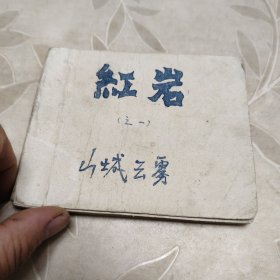 紅岩
(之一)
山城云雾